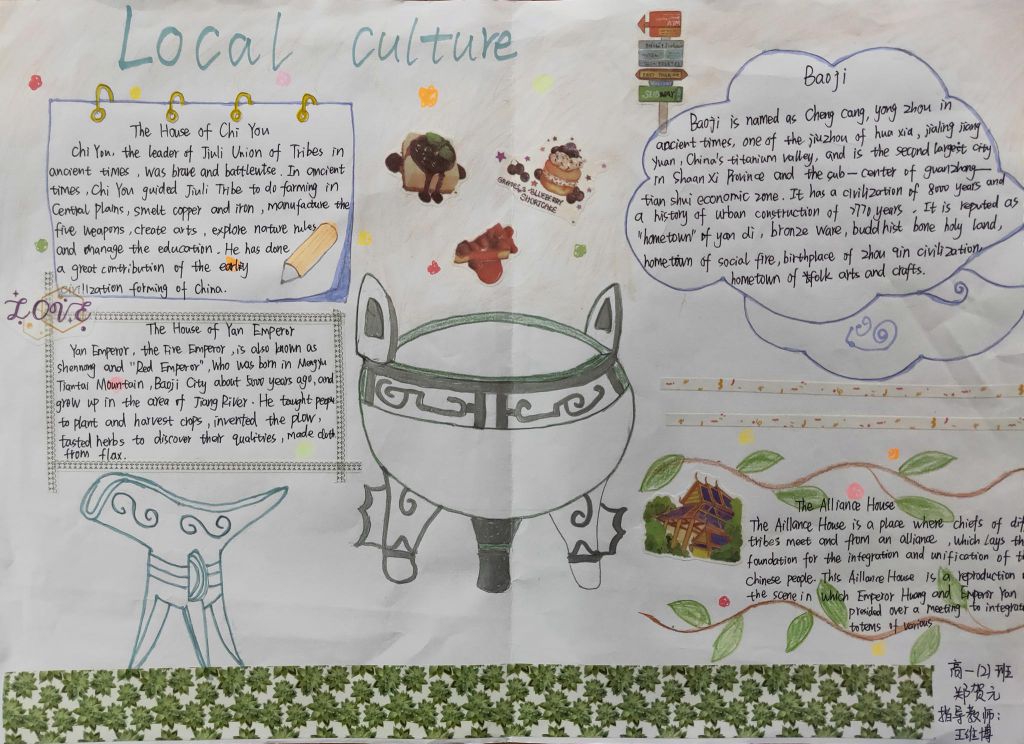 Local culture
The House of Chi You
Chi You, the leader of Jiuli Union of Tribes in
ancient times, was brave and battlewise. In ancient
times, Chi You guided Jiuli Tribe to do farming in
Central plains, smelt copper and iron, manufacture the
five weapons, create arts, explore nature rules
and manage the education. He has done
a great contribution of the earliy
civilization forming of China.
LOVE
The House of Yan Emperor
Yan Emperor, the Fire Emperor, is also known as
shennong and "Red Emperor", who was born in
Tiantai Mountain, Baoji City about 5000 years ago, and
grew up in the area of Jiang River. He taught people
to plant and harvest crops, invented the plow,
tasted herbs to discover their qualities, made cloth
from flax.
GRAPES & BLUEBERRY
SHORTCAKE
SUBWAY
Baoji
Baoji is named as Cheng cang, yong zhou in
ancient times, one of the jiuzhou of hua xia, jialing jiang
yuan, China's titanium valley, and is the second largest city
in Shaan Xi Province and the sub-center of guanzhong-
tian shui economic zone. It has a civilization of 8000 years and
a history of urban construction of 2770 years. It is reputed as
"hometown" of yan di, bronze ware, buddhist bone holy land,
hometown of social fire, birthplace of zhou qin civilization,
hometown of folk arts and crafts.
The Alliance House
The Aillance House is a place where chiefs of dif
tribes meet and from an alliance, which lays the
foundation for the integration and unification of t
Chinese people. This Aillance House is a reproduction
the scene in which Emperor Huang and Emperor Yan
presided over a meeting to integrat
totems of various
高一(2)班
郑贺元
指导教师:
王维博